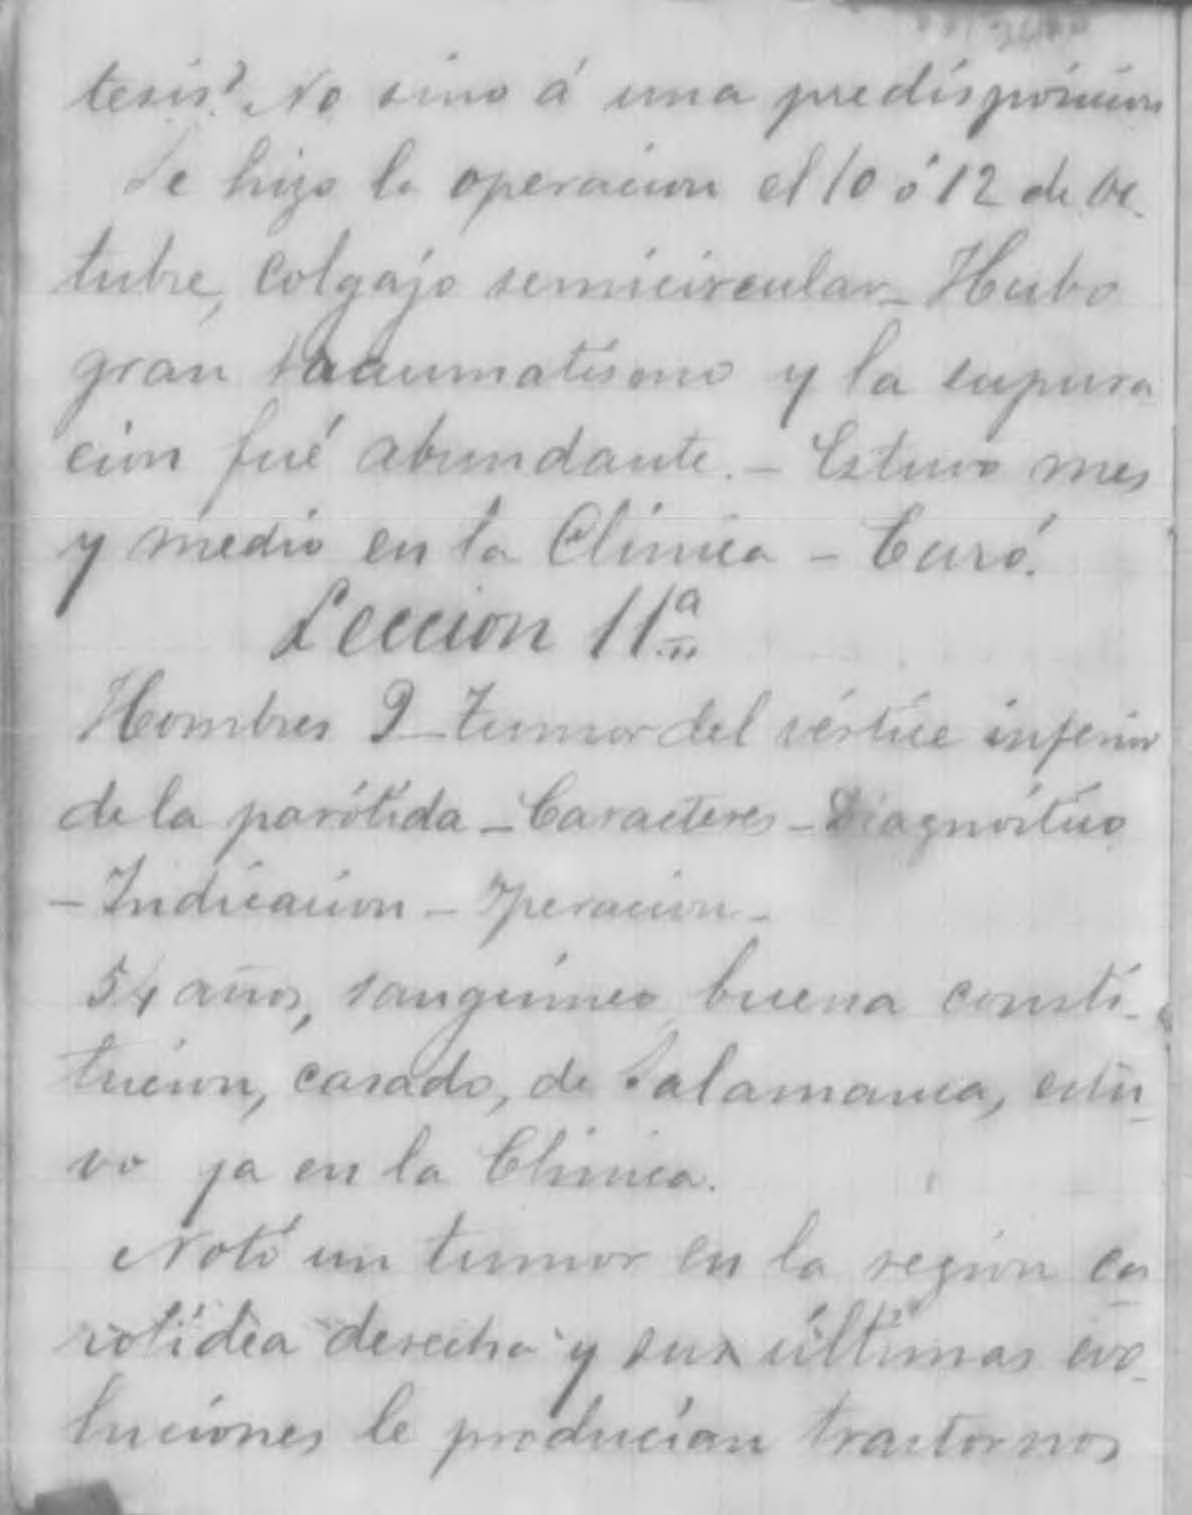 tesis? No sino á una predisposicion
Se hizo la operacion el 10 ó 12 de Oc-
tubre, colgajo semicircular_ Hubo
gran traaumatismo y la supura
cion fué abundante. _ Estuvo mes
y medio en la Clinica _ Curó.
Leccion 11ª
Hombres 9_ tumor del vértice inferior
de la parótida _ Caracteres _ Diagnóstico
_ Indicacion _ Operacion _
54 años, sanguineo, buena consti_
tucion, casado, de Salamanca, estu_
vo ya en la Clinica.
Notó un tumor en la region ca
rotidea derecha y sus últimas evo_
luciones le producian trastornos